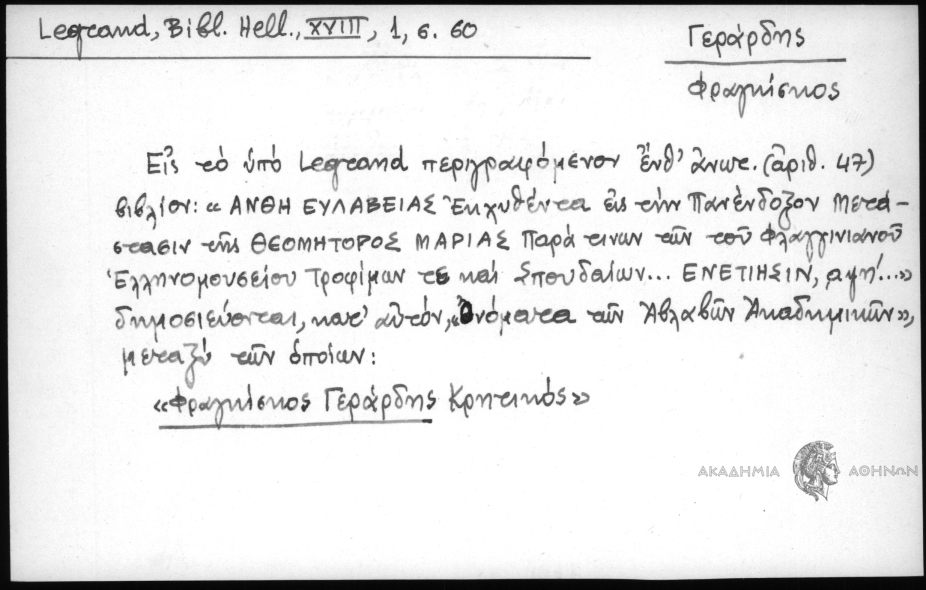 Legrand, Bibl. Hell., XVIII, 1, σ. 60
Γεράρδης
Φραγκίσκος
Εἰς τὸ ὑπὸ Legrand περιγραφόμενον ἔνθ' ἄνωτ. (ἀριθ. 47)
βιβλίον: « ΑΝΘΗ ΕΥΛΑΒΕΙΑΣ Ἐκχυθέντα εἰς τὴν Πανένδοξον Μετά-
στασιν τῆς ΘΕΟΜΗΤΟΡΟΣ ΜΑΡΙΑΣ Παρά τινων τῶν τοῦ Φλαγγινιανοῦ
Ἑλληνομουσείου Τροφίμων τε καί Σπουδαίων... ΕΝΕΤΙΗΣΙΝ, αψη'...»
δημοσιεύονται, κατ' αὐτόν, «Ὀνόματα τῶν Ἀβλαβῶν Ἀκαδημικῶν»,
μεταξύ τῶν ὁποίων:
«Φραγκίσκος Γεράρδης Κρητικός»
ΑΚΑΔΗΜΙΑ ΑΘΗΝΩΝ